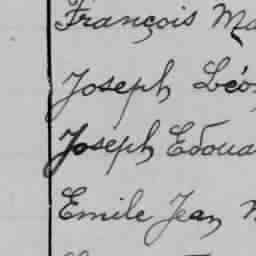 François Ma
Joseph Léo
Joseph Edoua
Emile Jean